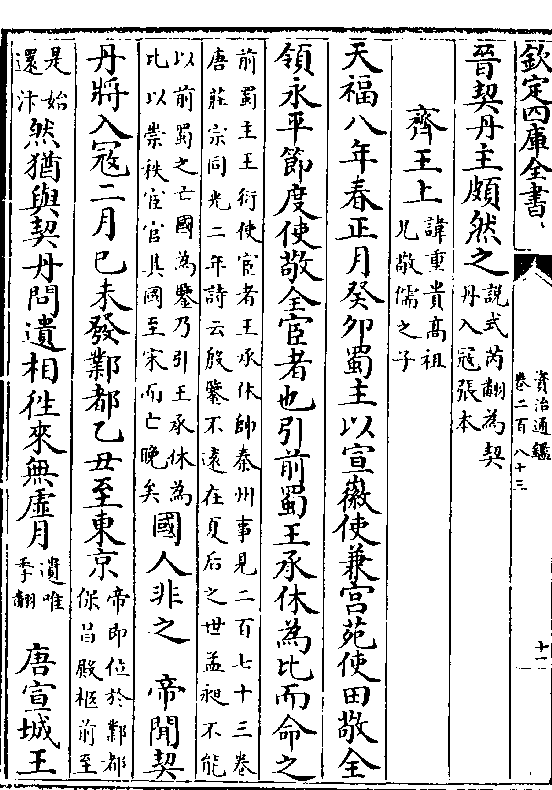 欽定四庫全書
資治通鑑
卷二百八十三
十一
晉契丹主頗然之說式芮翻為契
丹入冦張本
齊王上諱重貴髙祖
兄敬儒之子
天福八年春正月癸夘蜀主以宣徽使兼宫苑使田敬全
領永平節度使敬全宦者也引前蜀王承休為比而命之
前蜀主王衍使宦者王承休帥秦州事見二百七十三卷
唐莊宗同光二年詩云殷鑒不遠在夏后之世孟昶不能
以前蜀之亡國為鑒乃引王承休為
比以崇秩宦官其國至宋而亡晚矣國人非之 帝聞契
丹將入冦二月已未發鄴都乙丑至東京帝即位於鄴都
保昌殿柩前至
是始
還汴然猶與契丹問遺相往來無虚月遺唯
季翻 唐宣城王